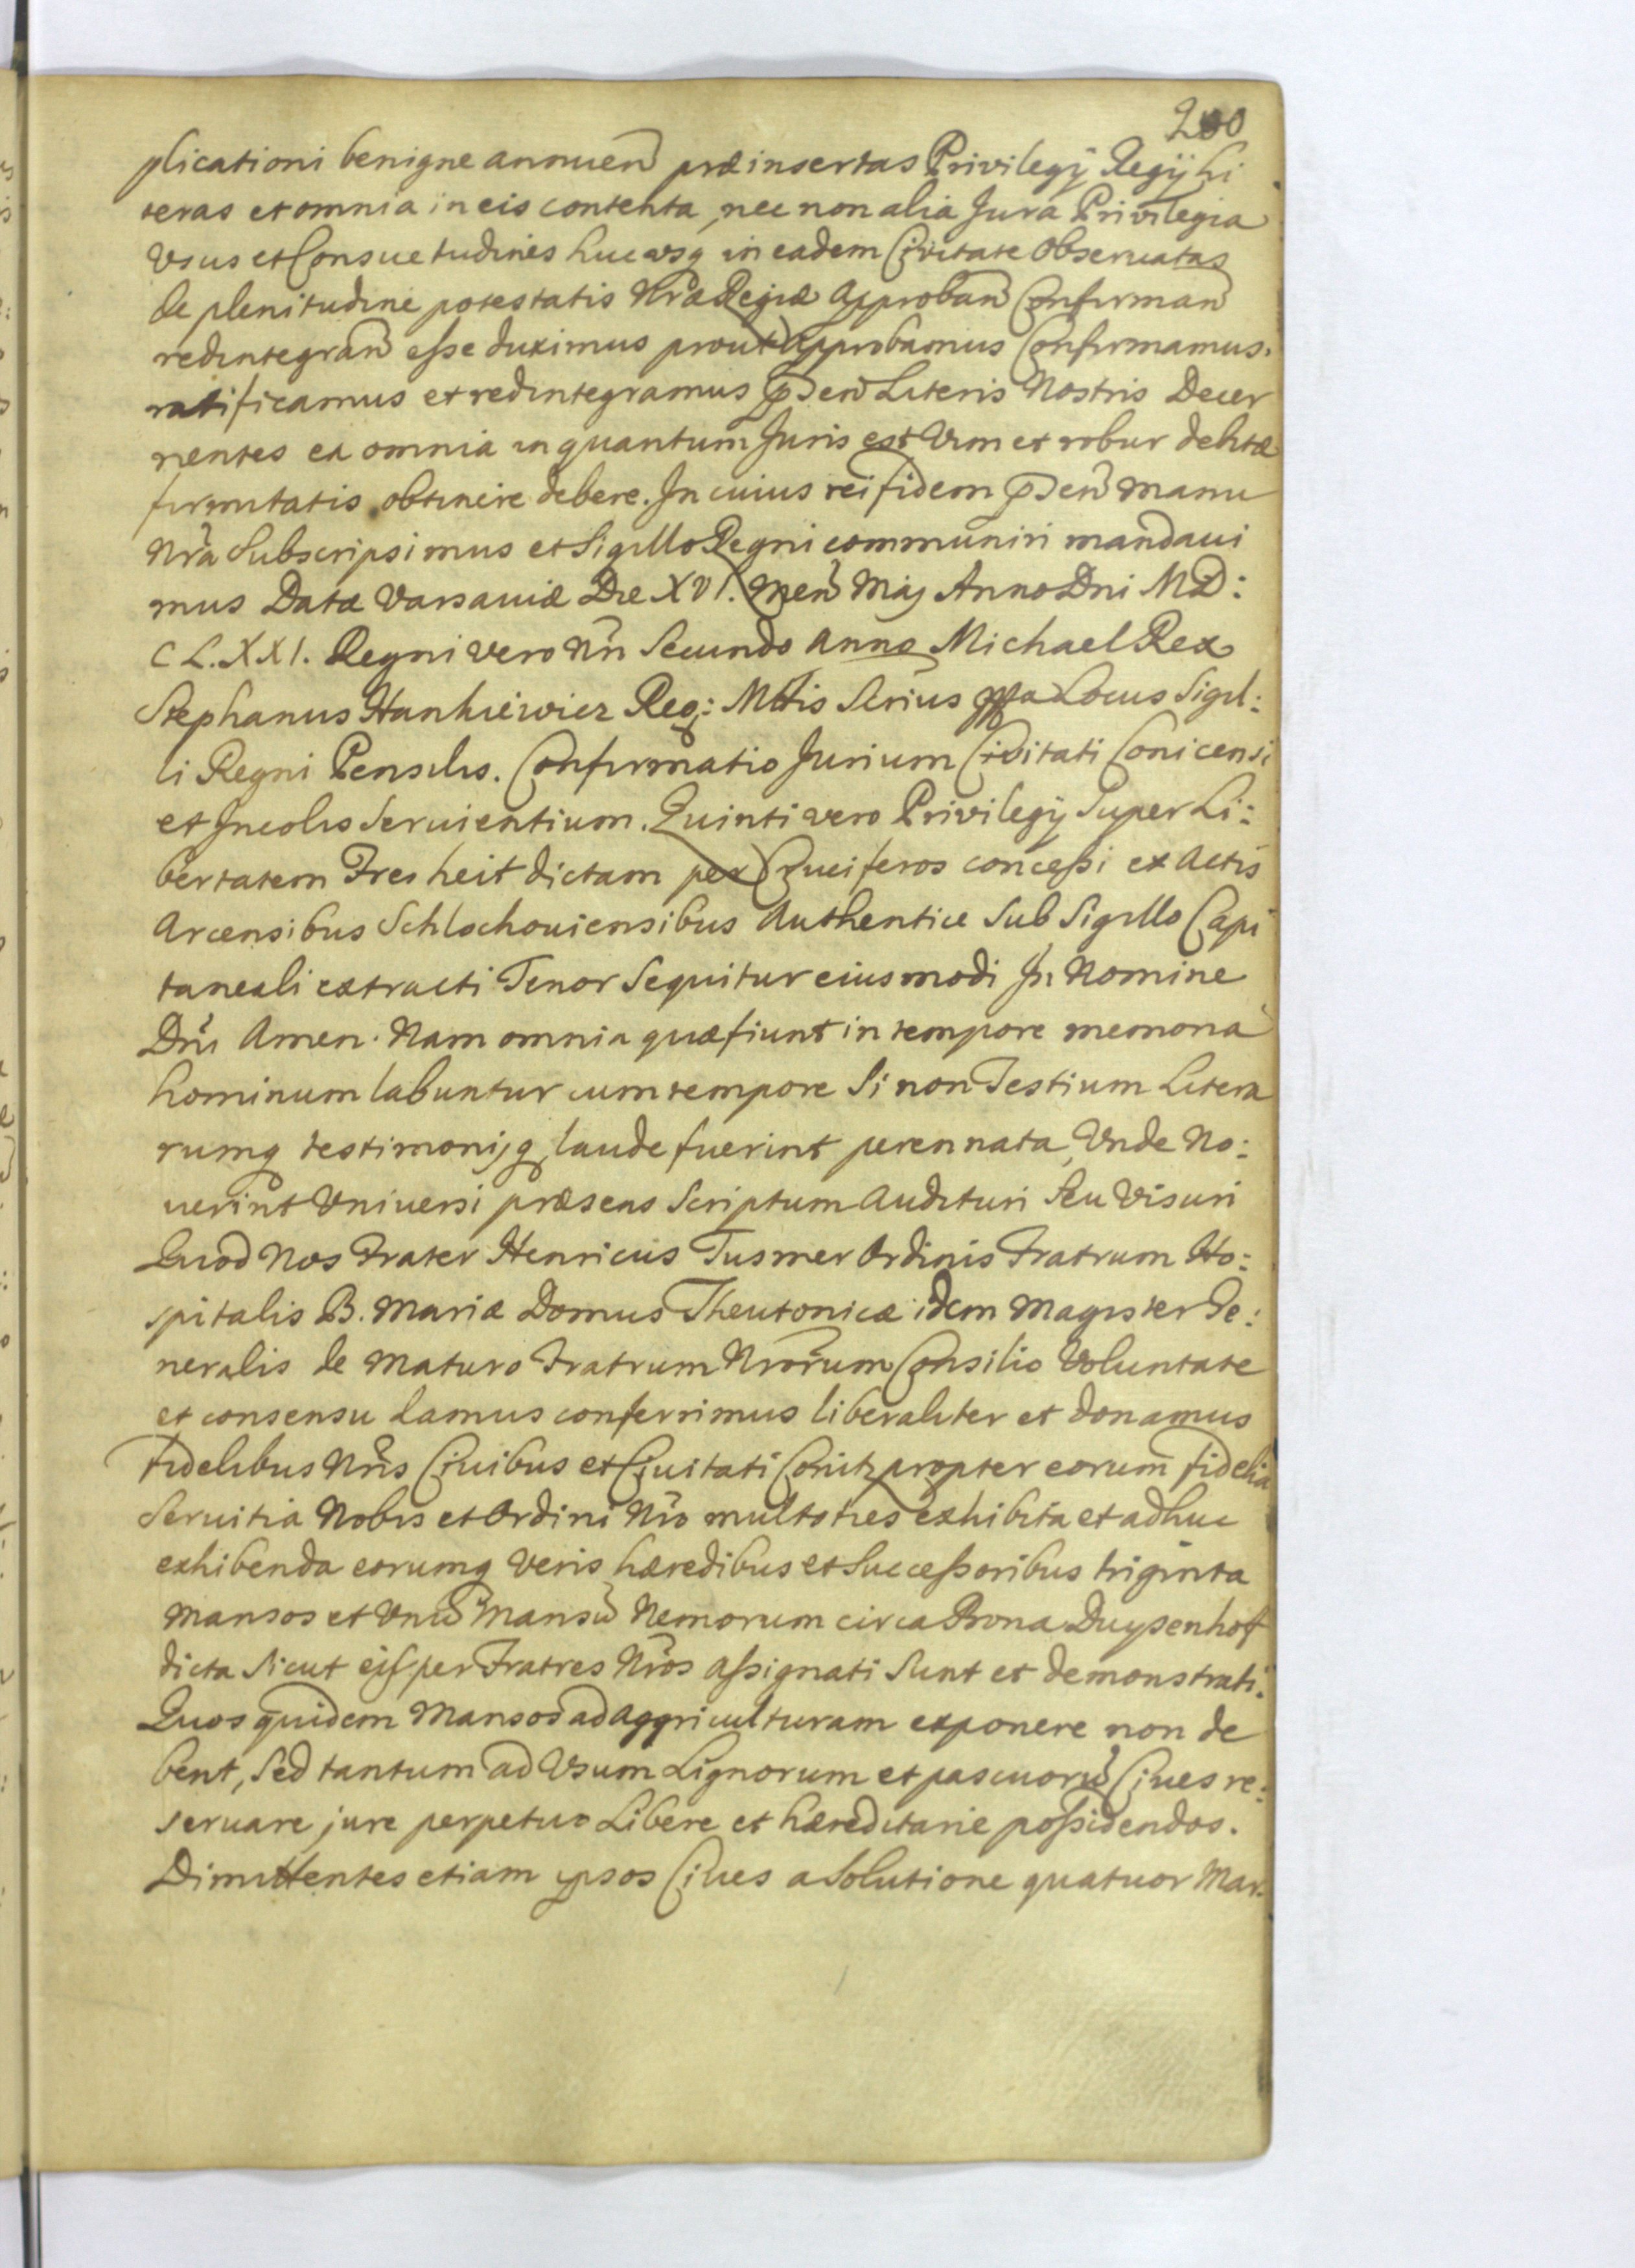 200
plicationi benigne annuen̄ præinsertas Privilegÿ Regÿ Li
teras et omnia in eis contenta, nec non alia Jura Privilegia
Vsus et Consuetudines hucusq in eadem Civitate Obseruatas
de plenitudine potestatis Nr̄æ Regiæ Approban̄ Confirman̄
redintegran̄ esse duximus prout Approbamus Confirmamus.
ratificamus et redintegramus p̄sen̄ Literis Nostris Decer
nentes ea omnia in quantum Juris est Vim et robur debitæ
firmitatis obtinere debere. In cuius rei fidem p̄sen̄ manu
Nr̄a Subscripsimus et Sigillo Regni communiri mandaui
mus Datæ Varsaviæ Die XVI. Men̄ Maj Anno Dni MD:
CL.XXI. Regni vero Nr̄i Secundo Anno Michael Rex
Stephanus Hankiewicz Reg: Mttis Sērius mppa Locus Sigil:
li Regni Pensilis. Confirmatio Jurium Civitati Conicensi
et Incolis Seruientium. Quinti vero Privilegÿ Super Li:
bertatem Freÿheit dictam per Cruciferos concessi ex Actis
Arcensibus Schlochouiensibus Authentice Sub Sigillo Capi
taneali extracti Tenor Sequitur eiusmodi In Nomine
Dn̄i Amen. Nam omnia quæ fiunt in tempore memoria
hominum labuntur cum tempore Si non Testium Litera
rumq testimonijq, laude fuerint perennata, Vnde No:
uerint Vniuersi præsens Scriptum Audituri Seu Visuri
Quod Nos Frater Henricus Tusmer Ordinis Fratrum Ho:
spitalis B. Mariæ Domus Theutonicæ idem Magister Ge:
neralis de Maturo Fratrum Nrōrum Consilio Voluntate
et consensu Damus conferrimus liberaliter et donamus
Fidelibus Nr̄is Ciuibus et Ciuitati Conitz propter eorum fidelia
Seruitia Nobis et Ordini Nr̄o multoties exhibita et adhuc
exhibenda eorumq Veris hæredibus et Successoribus triginta
Mansos et Vnū Mansū Nemorum circa Bona Duysenhof
dicta Sicut eis per Fratres Nr̄os assignati Sunt et demonstrati.
Quos quidem Mansos ad Aggriculturam exponere non de
bent, Sed tantum ad Vsum Lignorum et pascuorū Ciues re:
seruare jure perpetuo Libere et hæreditarie possidendos.
Dimittentes etiam ipsos Ciues a Solutione quatuor Mar: